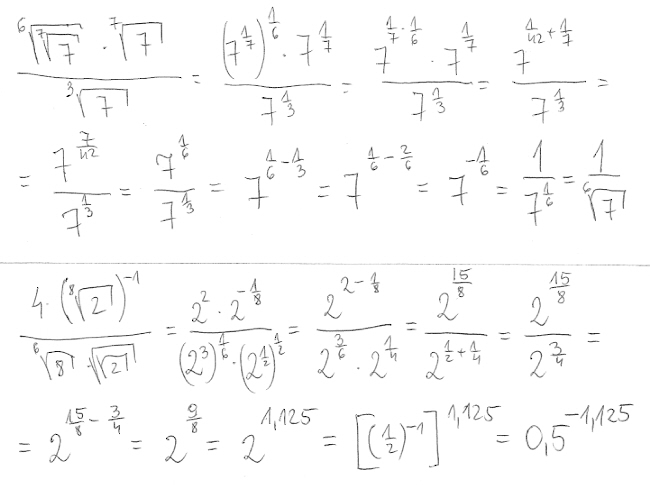 \frac{\sqrt[6]{\sqrt[7]{7}} \cdot \sqrt[7]{7}}{\sqrt[3]{7}} = \frac{\left(7^{\frac{1}{7}}\right)^{\frac{1}{6}} \cdot 7^{\frac{1}{7}}}{7^{\frac{1}{3}}} = \frac{7^{\frac{1}{7} \cdot \frac{1}{6}} \cdot 7^{\frac{1}{7}}}{7^{\frac{1}{3}}} = \frac{7^{\frac{1}{42} + \frac{1}{7}}}{7^{\frac{1}{3}}} =
= \frac{7^{\frac{7}{42}}}{7^{\frac{1}{3}}} = \frac{7^{\frac{1}{6}}}{7^{\frac{1}{3}}} = 7^{\frac{1}{6} - \frac{1}{3}} = 7^{\frac{1}{6} - \frac{2}{6}} = 7^{-\frac{1}{6}} = \frac{1}{7^{\frac{1}{6}}} = \frac{1}{\sqrt[6]{7}}
\frac{4 \cdot \left(\sqrt[8]{2}\right)^{-1}}{\sqrt[6]{8} \cdot \sqrt{\sqrt{2}}} = \frac{2^2 \cdot 2^{-\frac{1}{8}}}{\left(2^3\right)^{\frac{1}{6}} \cdot \left(2^{\frac{1}{2}}\right)^{\frac{1}{2}}} = \frac{2^{2 - \frac{1}{8}}}{2^{\frac{3}{6}} \cdot 2^{\frac{1}{4}}} = \frac{2^{\frac{15}{8}}}{2^{\frac{1}{2} + \frac{1}{4}}} = \frac{2^{\frac{15}{8}}}{2^{\frac{3}{4}}} =
= 2^{\frac{15}{8} - \frac{3}{4}} = 2^{\frac{9}{8}} = 2^{1,125} = \left[\left(\frac{1}{2}\right)^{-1}\right]^{1,125} = 0,5^{-1,125}